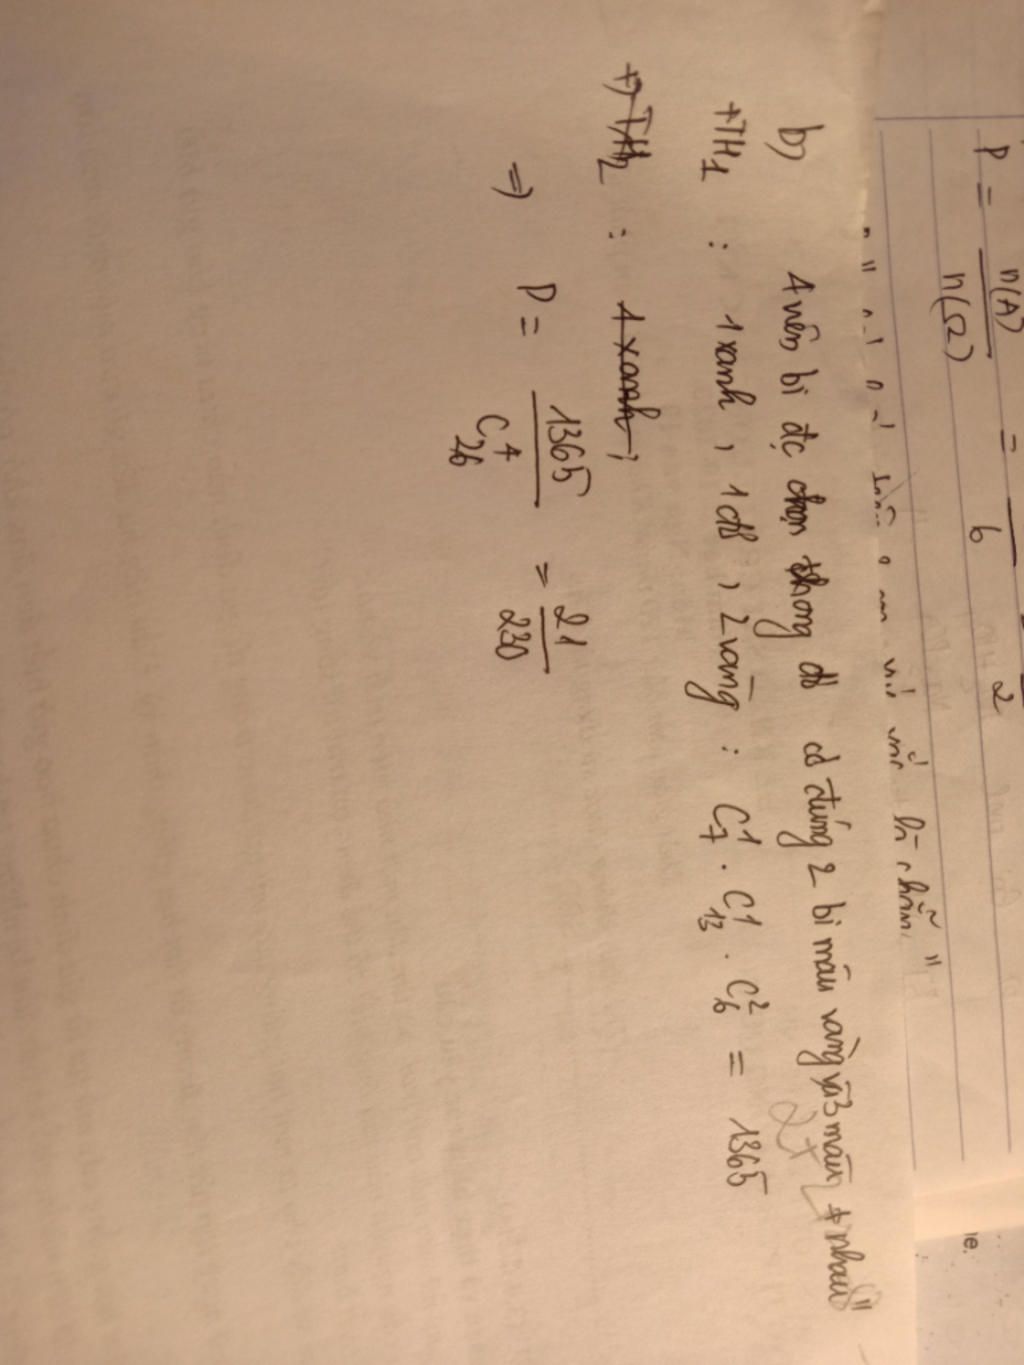 P = n(A) / n(Ω) = / 6 2
b) 4 viên bi đc chọn trong đó có đúng 2 bi màu vàng và 3 màu ≠ nhau"
+TH1 : 1 xanh, 1 đỏ, 2 vàng : C₇¹ . C₁₃¹ . C₆² = 1365
+) TH2 : 1 xanh,
=> P = 1365 / C₂₆⁴ = 21 / 230
ne.